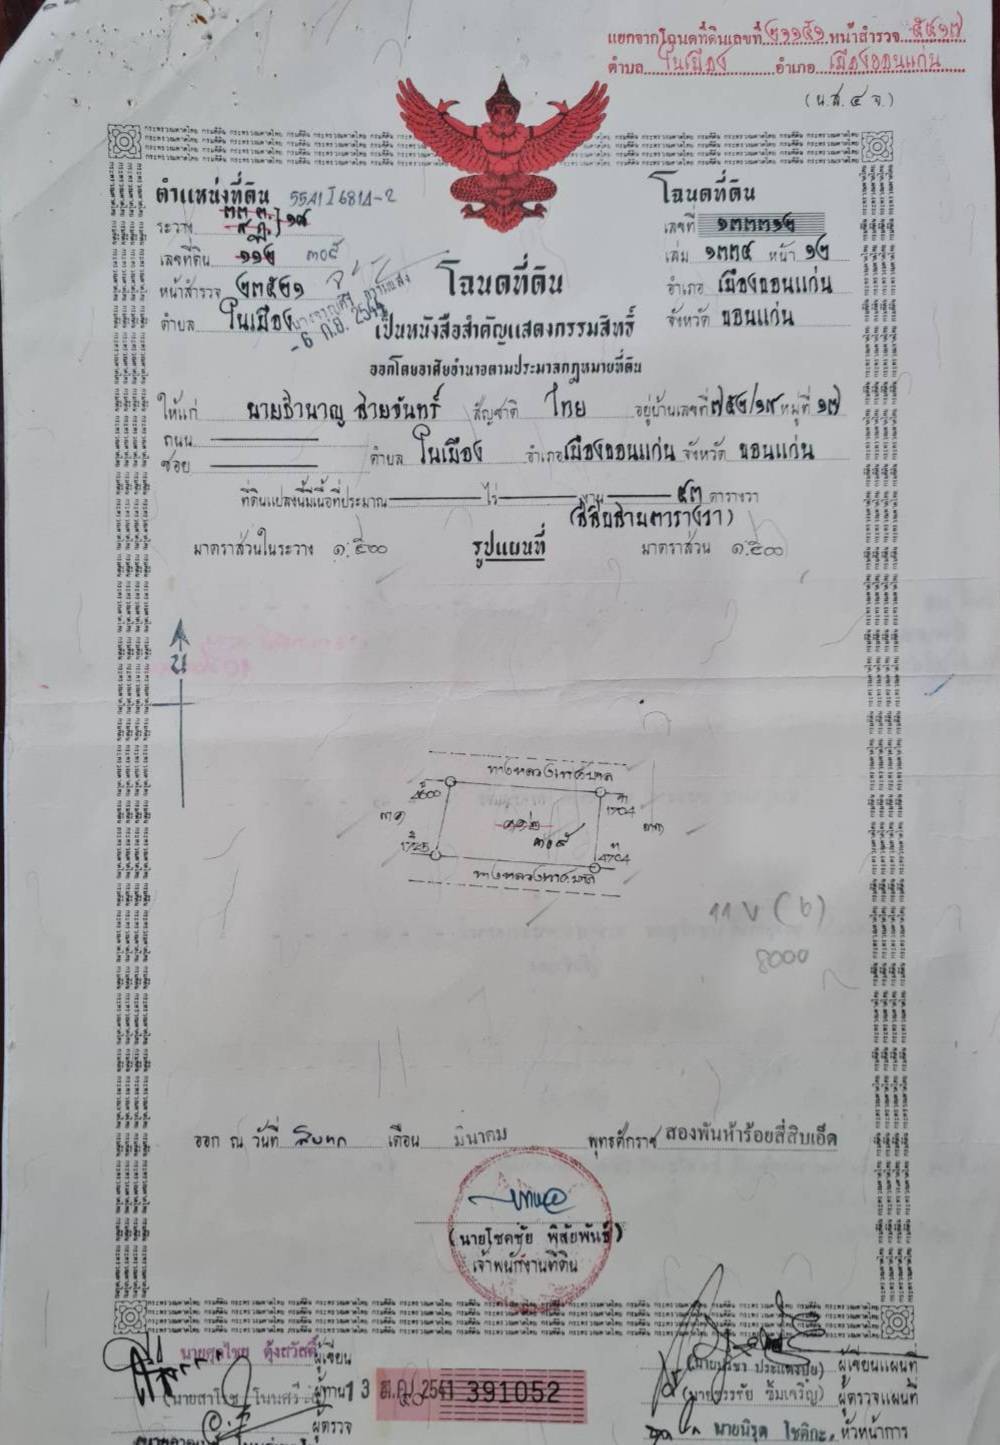 แยกจากโฉนดที่ดินเลขที่ ๒๑๑๕๑ หน้าสำรวจ ๕๕๑๗
ตำบล ในเมือง อำเภอ เมืองขอนแก่น
(น.ส.๔ จ.)
ตำแหน่งที่ดิน 5541 I 6814-2
ระวาง ๑๗
เลขที่ดิน ๑๑๒ ๓๐๕
หน้าสำรวจ ๒๓๕๒๑
ตำบล ในเมือง
- 6 ก.ย. 2544
โฉนดที่ดิน
เลขที่ ๑๓๓๓๑๒
เล่ม ๑๓๓๔ หน้า ๑๒
อำเภอ เมืองขอนแก่น
จังหวัด ขอนแก่น
โฉนดที่ดิน
เป็นหนังสือสำคัญแสดงกรรมสิทธิ์
ออกโดยอาศัยอำนาจตามประมวลกฎหมายที่ดิน
ให้แก่ นายชำนาญ สายจันทร์ สัญชาติ ไทย อยู่บ้านเลขที่ ๗๕๒/๑๙ หมู่ที่ ๑๗
ถนน
ซอย ตำบล ในเมือง อำเภอ เมืองขอนแก่น จังหวัด ขอนแก่น
ที่ดินแปลงนี้มีเนื้อที่ประมาณ ไร่ งาน ๔๓ ตารางวา
(สี่สิบสามตารางวา)
มาตราส่วนในระวาง ๑:๕๐๐ รูปแผนที่ มาตราส่วน ๑:๕๐๐
น
ทางหลวงเทศบาล
4600
1904
๑๑๒
๓๐๕
1725
4704
ทางหลวงเทศบาล
11 V (b)
8000
ออก ณ วันที่ สิบหก เดือน มีนาคม พุทธศักราช สองพันห้าร้อยสี่สิบเอ็ด
(นายโชคชัย พิสัยพันธ์)
เจ้าพนักงานที่ดิน
ผู้เขียน
ผู้ทาน
ผู้ตรวจ
13 2541 391052
ผู้เขียนแผนที่
ผู้ตรวจแผนที่
นายนิรุต โชติกะ หัวหน้าการ